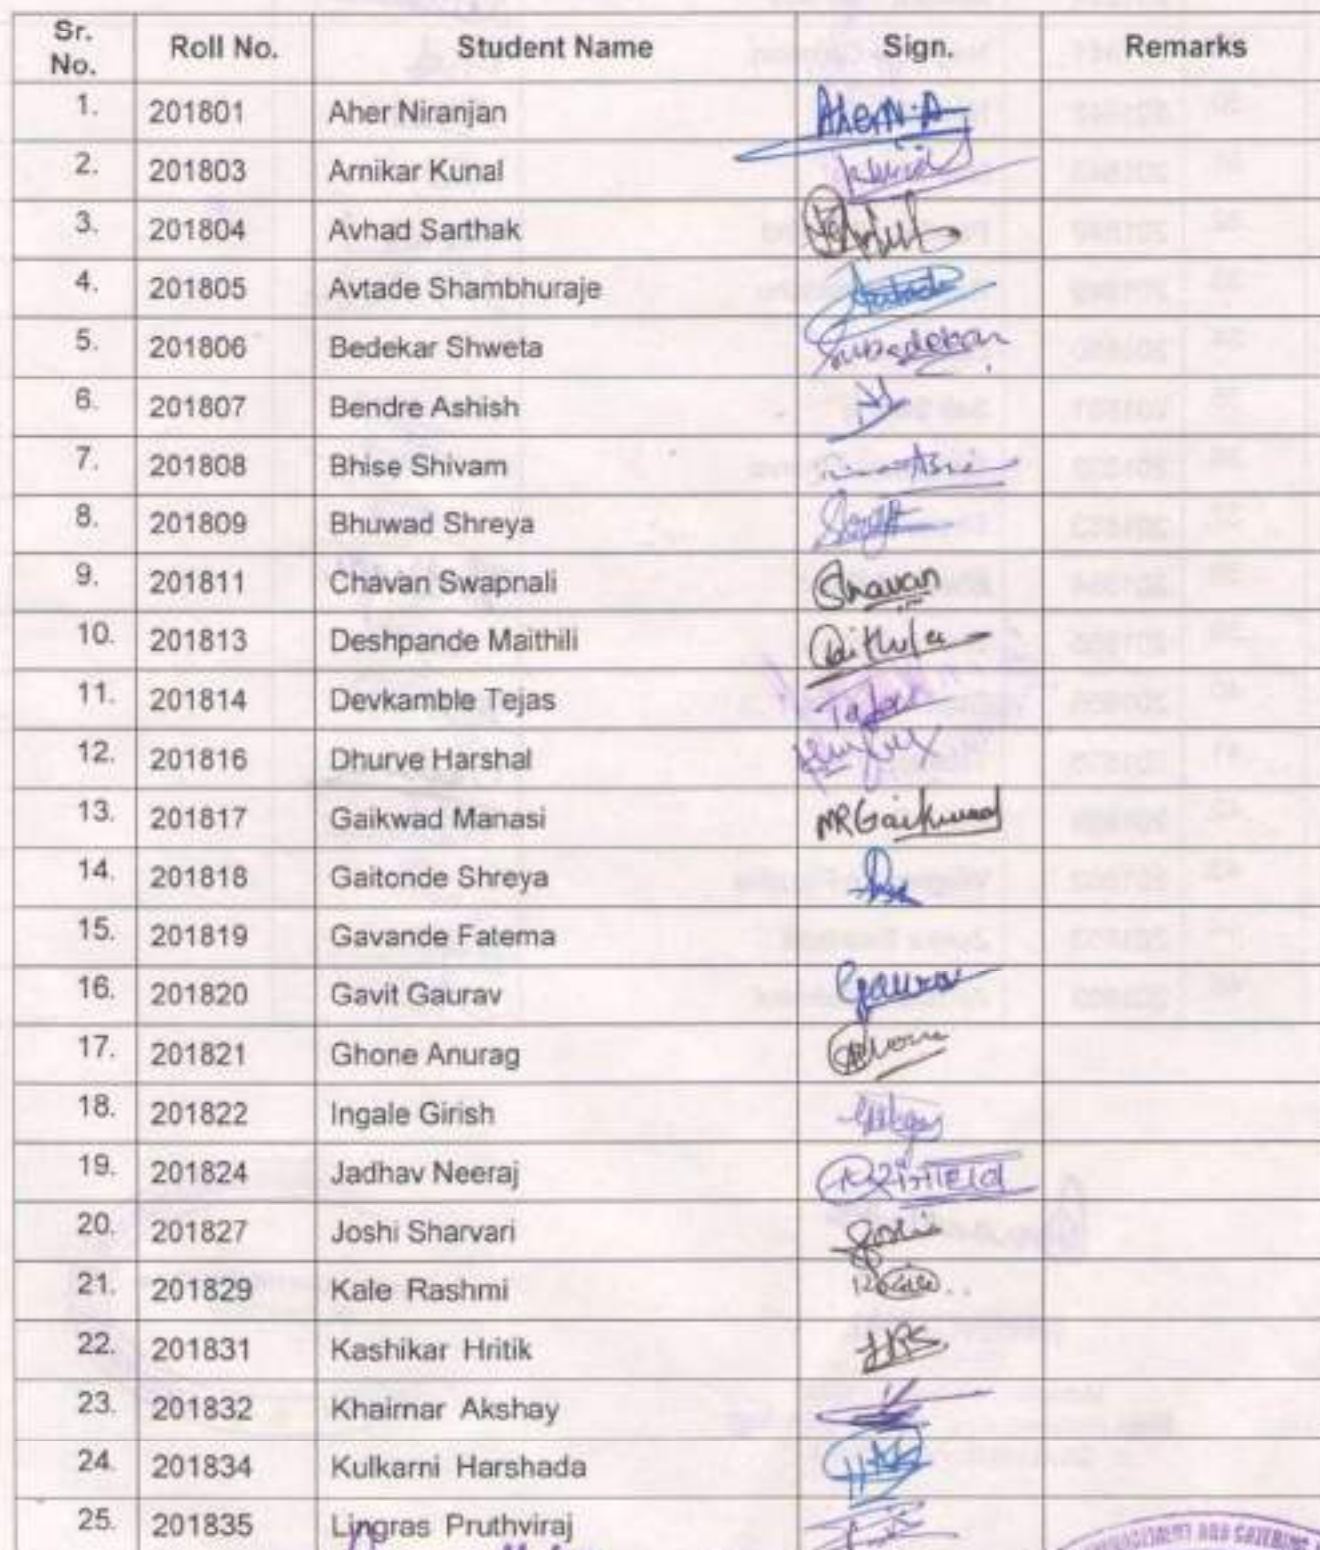 Sr. No. Roll No. Student Name Sign. Remarks
1. 201801 Aher Niranjan AherN.A.
2. 201803 Arnikar Kunal
3. 201804 Avhad Sarthak
4. 201805 Avtade Shambhuraje
5. 201806 Bedekar Shweta
6. 201807 Bendre Ashish
7. 201808 Bhise Shivam
8. 201809 Bhuwad Shreya
9. 201811 Chavan Swapnali Chavan
10. 201813 Deshpande Maithili
11. 201814 Devkamble Tejas
12. 201816 Dhurve Harshal
13. 201817 Gaikwad Manasi MRGaikwad
14. 201818 Gaitonde Shreya
15. 201819 Gavande Fatema
16. 201820 Gavit Gaurav Gaurav
17. 201821 Ghone Anurag
18. 201822 Ingale Girish
19. 201824 Jadhav Neeraj
20. 201827 Joshi Sharvari Joshi
21. 201829 Kale Rashmi
22. 201831 Kashikar Hritik
23. 201832 Khairnar Akshay
24. 201834 Kulkarni Harshada
25. 201835 Lingras Pruthviraj
AND CATERING